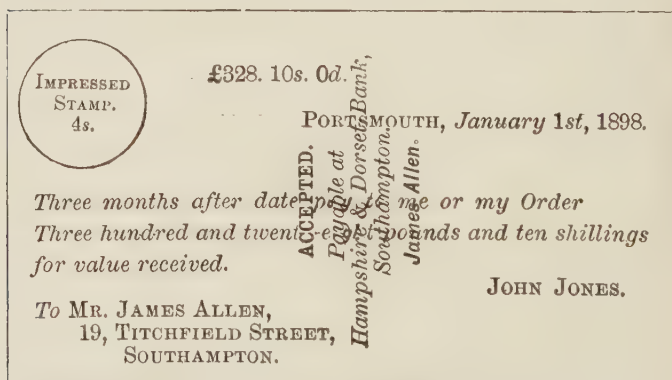 £328. 10s. 0d.
IMPRESSED
STAMP.
4s.
PORTSMOUTH, January 1st, 1898.
Three months after date pay to me or my Order
Three hundred and twenty-eight pounds and ten shillings
for value received.
JOHN JONES.
To MR. JAMES ALLEN,
19, TITCHFIELD STREET,
SOUTHAMPTON.
ACCEPTED.
Payable at
Hampshire & Dorset Bank,
Southampton.
James Allen.